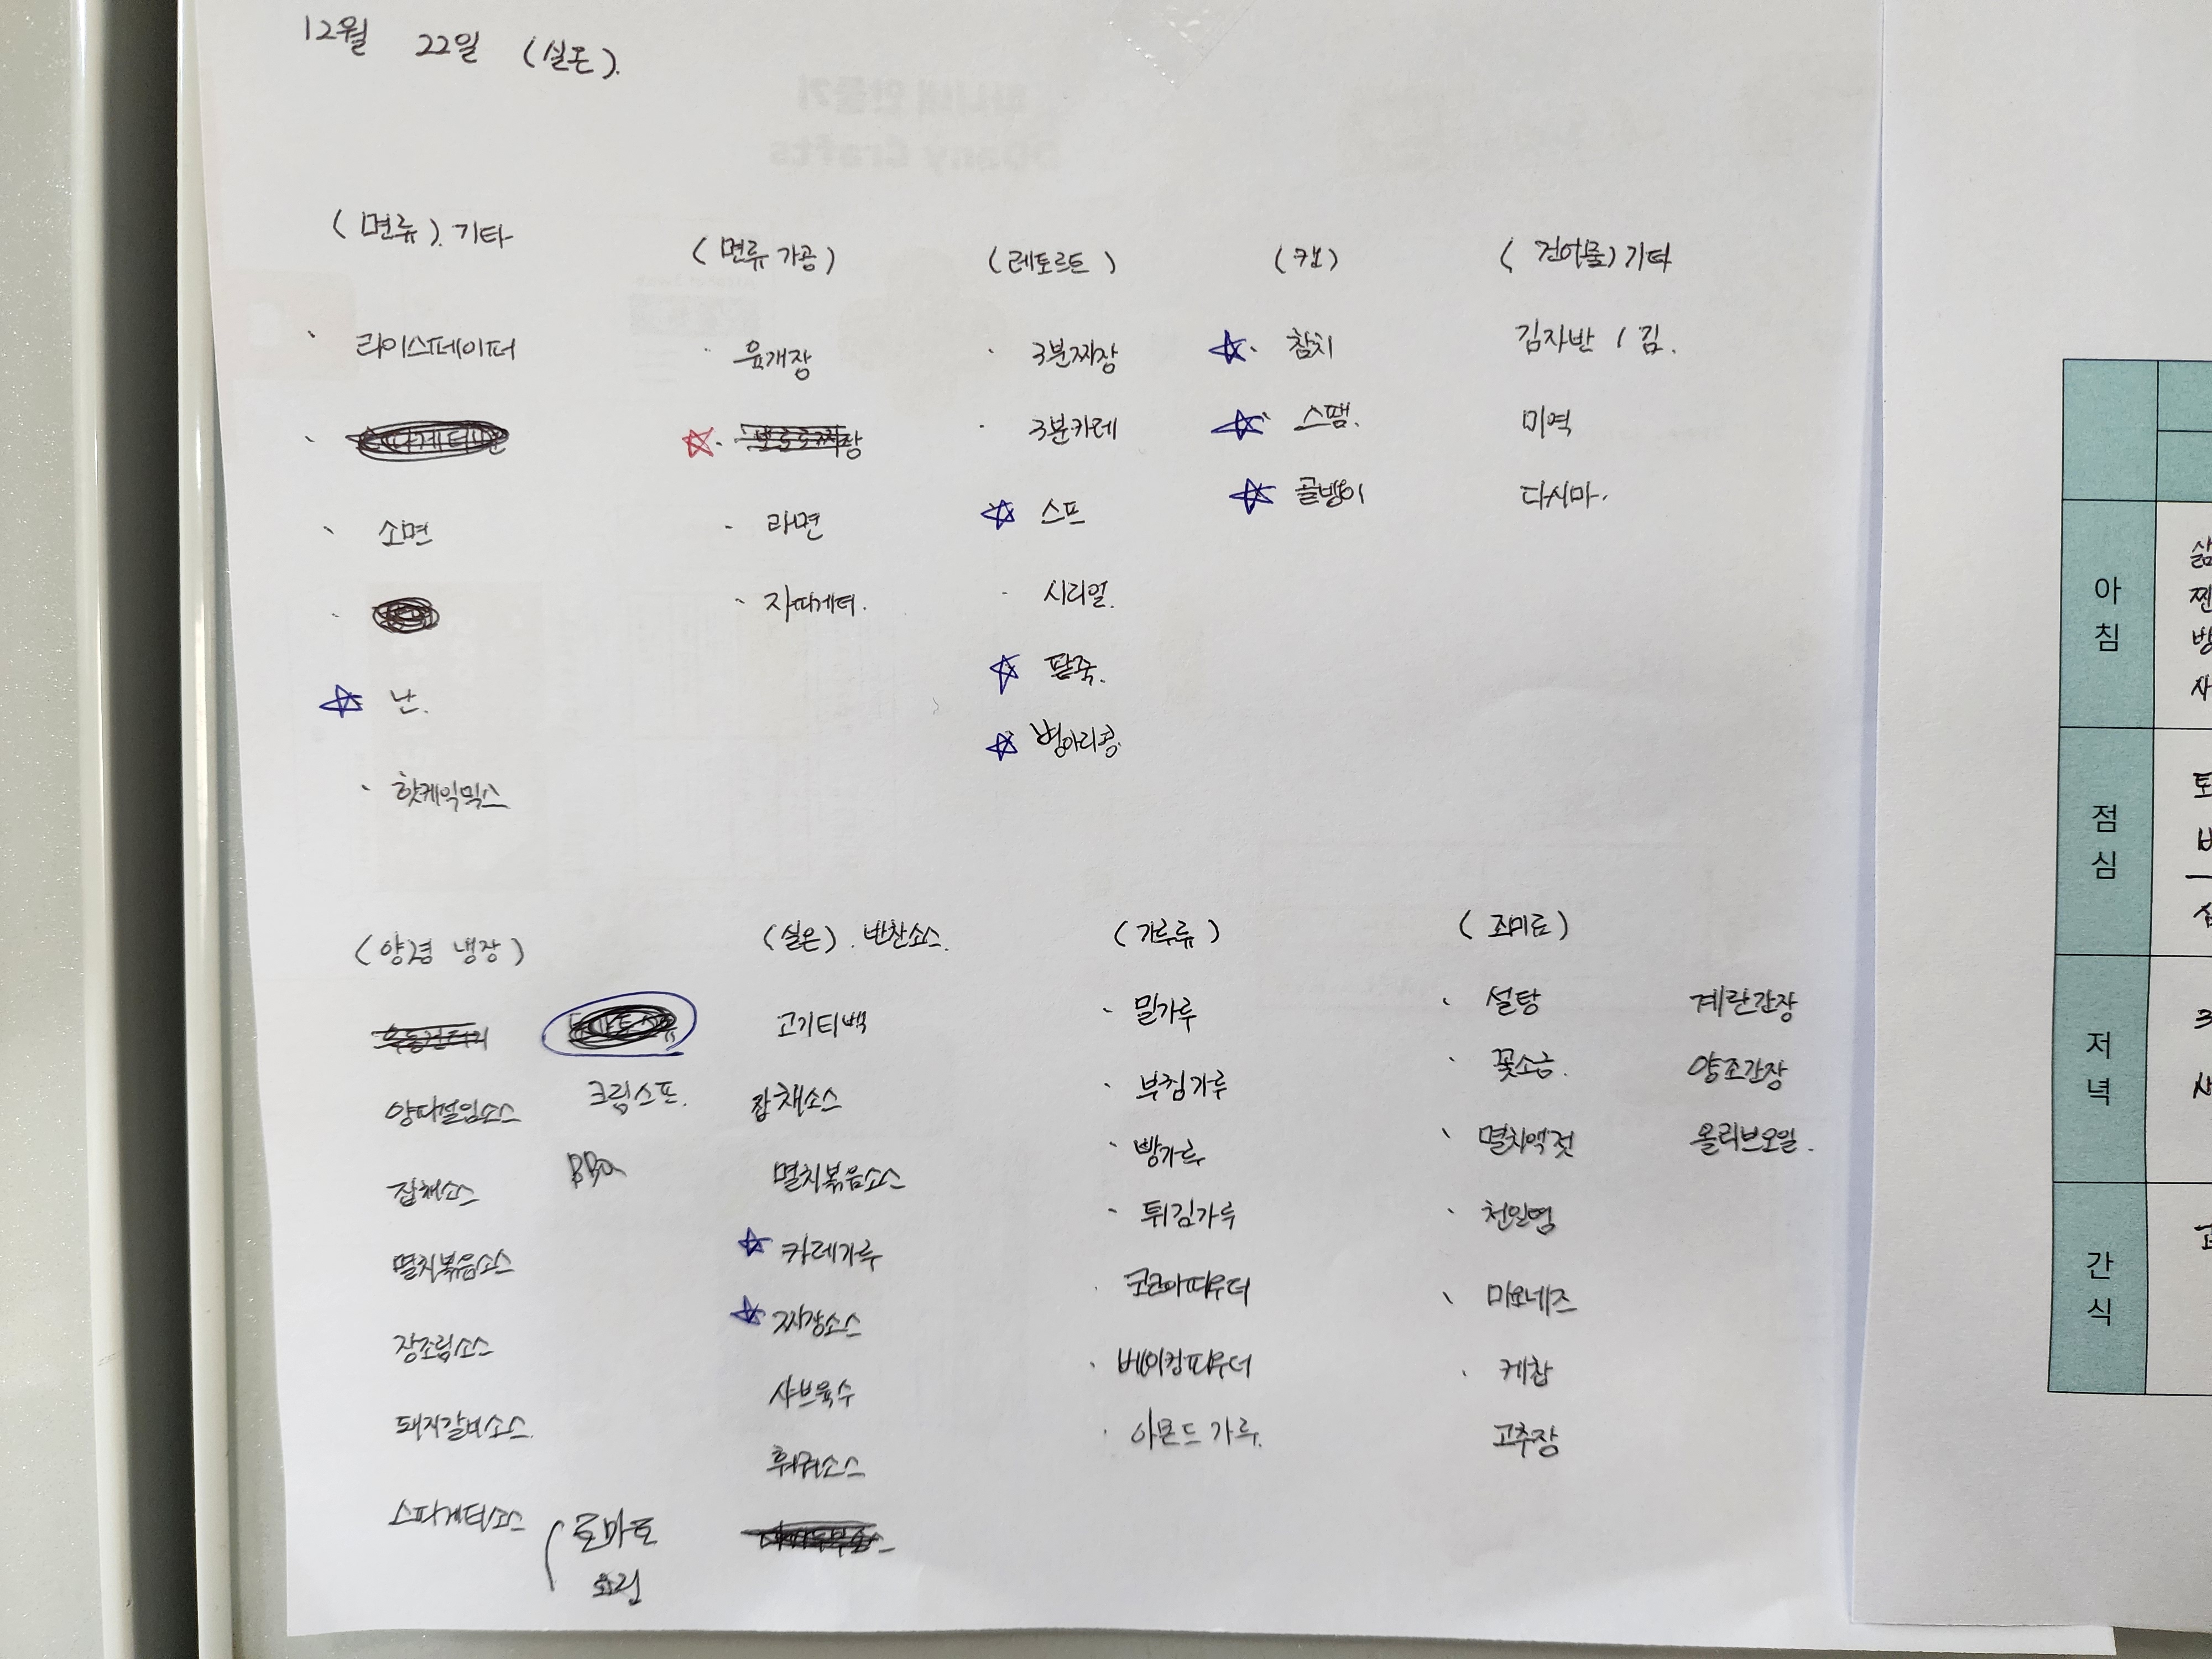 12월 22일 (실온).
(면류). 기타
라이스페이퍼
소면
난.
핫케익믹스
(면류 가공)
육개장
뽀로로짜장
라면
(레토르트)
3분짜장
3분카레
스프
시리얼.
팥죽.
병아리콩.
(캔)
참치
스팸.
골뱅이
(건어물) 기타
김자반 / 김.
미역
다시마.
(양념 냉장)
잡채소스
멸치볶음소스
장조림소스
돼지갈비소스.
스파게티소스
토마토
크림스프.
BBQ
(실온). 반찬소스.
고기티백
잡채소스
멸치볶음소스
카레가루
짜장소스
샤브육수
훠궈소스
(가루류)
밀가루
부침가루
빵가루
튀김가루
코코아파우더
베이킹파우더
아몬드 가루.
(조미료)
설탕
꽃소금.
멸치액젓
천일염
마요네즈
케찹
고추장
계란간장
양조간장
올리브오일.
아침
점심
저녁
간식